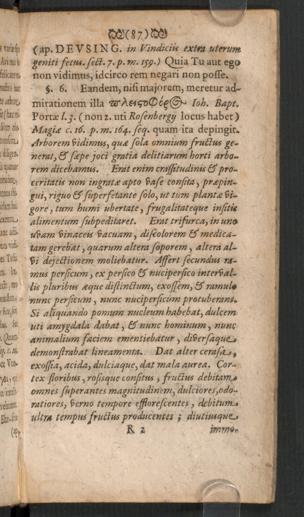 (87)
(ap. DEVSING. in Vindiciis extra uterum
geniti fetus. sect. 7. p. m. 159.) Quia Tu aut ego
non vidimus, idcirco rem negari non posse.
§. 6. Eandem, nisi majorem, meretur ad-
mirationem illa Ioh. Bapt.
Portæ l. 3. (non 2. uti Rosenbergy locus habet)
Magiæ c. 16. p. m. 164. seq. quam ita depingit.
Arborem vidimus, quæ sola omnium fructus ge-
nerat, & sæpe joci gratia delitiarum horti arbo-
rem dicebamus. Erat enim crassitudinis & pro-
ceritatis non ingratæ apto vase consita, præpin-
gui, riguo & superfetante solo, ut tum plantæ vi-
gore, tum humi ubertate, frugalitateque insitis
alimentum subpeditaret. Erat trifurca, in uno
uvam vinaceis vacuam, discolorem & medica-
tam gerebat, quarum altera soporem, altera al-
vi dejectionem moliebatur. Affert secundus ra-
mus persicum, ex persico & nucipersico interval-
lis pluribus æque distinctum, exossem, & ramulo
nunc persicum, nunc nucipersicum protuberans.
Si aliquando pomum nucleum habebat, dulcem
uti amygdala dabat, & nunc hominum, nunc
animalium faciem ementiebatur, diversaque
demonstrabat lineamenta. Dat alter cerasa,
exossia, acida, dulciaque, dat mala aurea. Cor-
tex floribus, rosisque consitus, fructus debitam
omnes superantes magnitudinem, dulciores, odo-
ratiores, verno tempore efflorescentes, debitum
ultra tempus fructus producentes; diutiusque
R 2 immo-